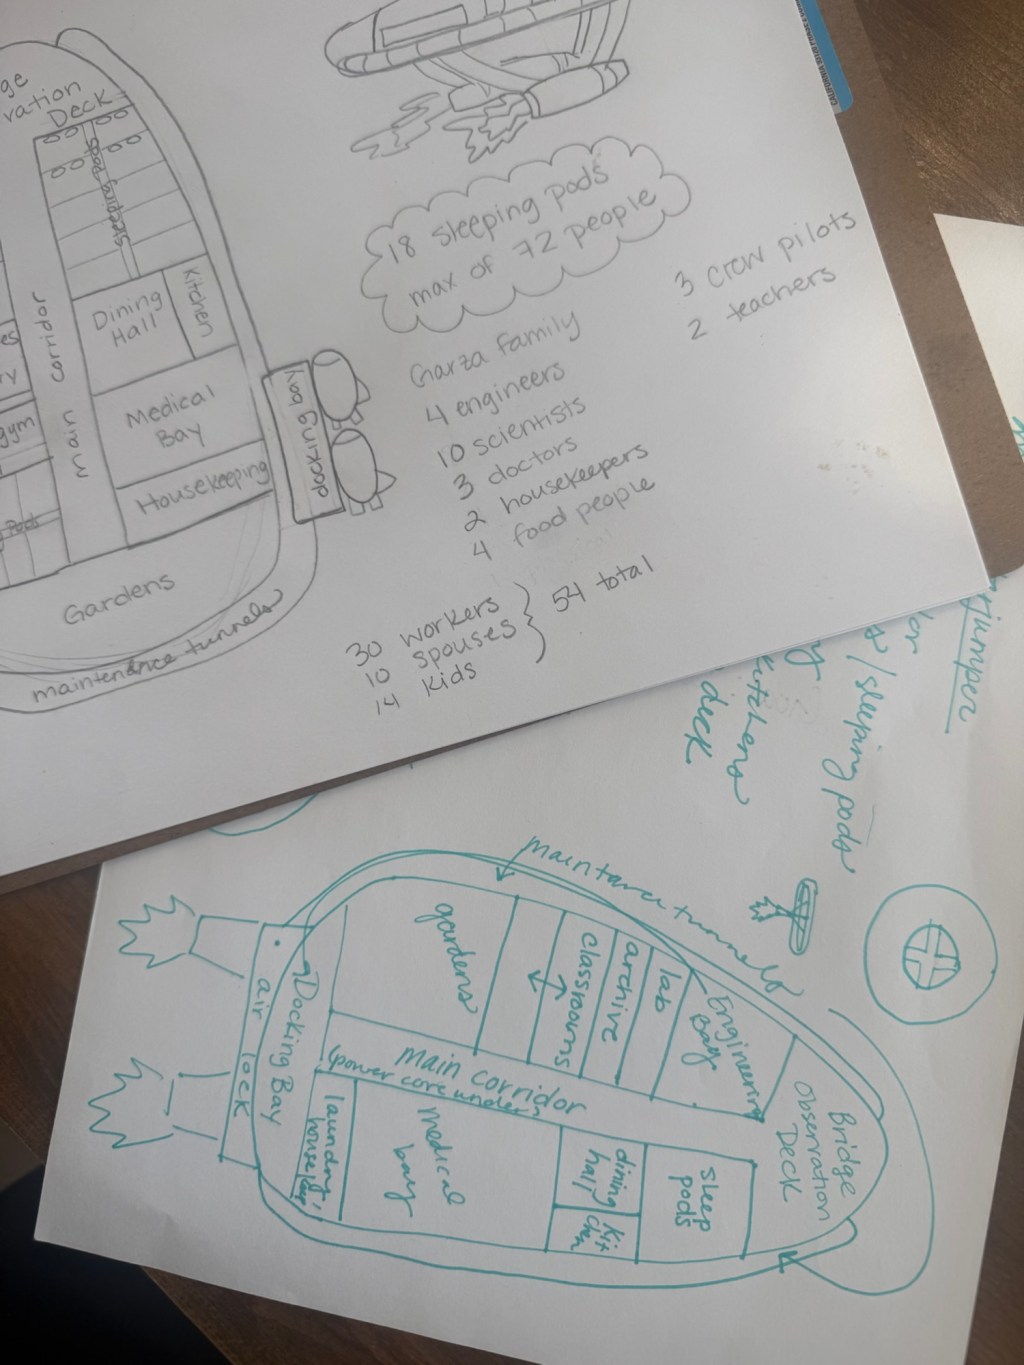 ge
ration
Deck
Sleeping Pods
Dining
Hall
Kitchen
main corridor
es
ry
gym
Medical
Bay
Housekeeping
Pods
docking bay
Gardens
maintenance tunnels
18 sleeping pods
max of 72 people
Garza family
4 engineers
10 scientists
3 doctors
2 housekeepers
4 food people
3 crew pilots
2 teachers
30 workers
10 spouses
14 kids
54 total
rjumper
or
s/sleeping pods
ng
kitchens
deck
maintance tunnels
gardens
classrooms
archive
lab
Engineering
Bay
Docking Bay
air lock
main corridor
(power core under)
laundry/
medical
bay
dining
hall
kit
chen
sleep
pods
Bridge
Observation
Deck